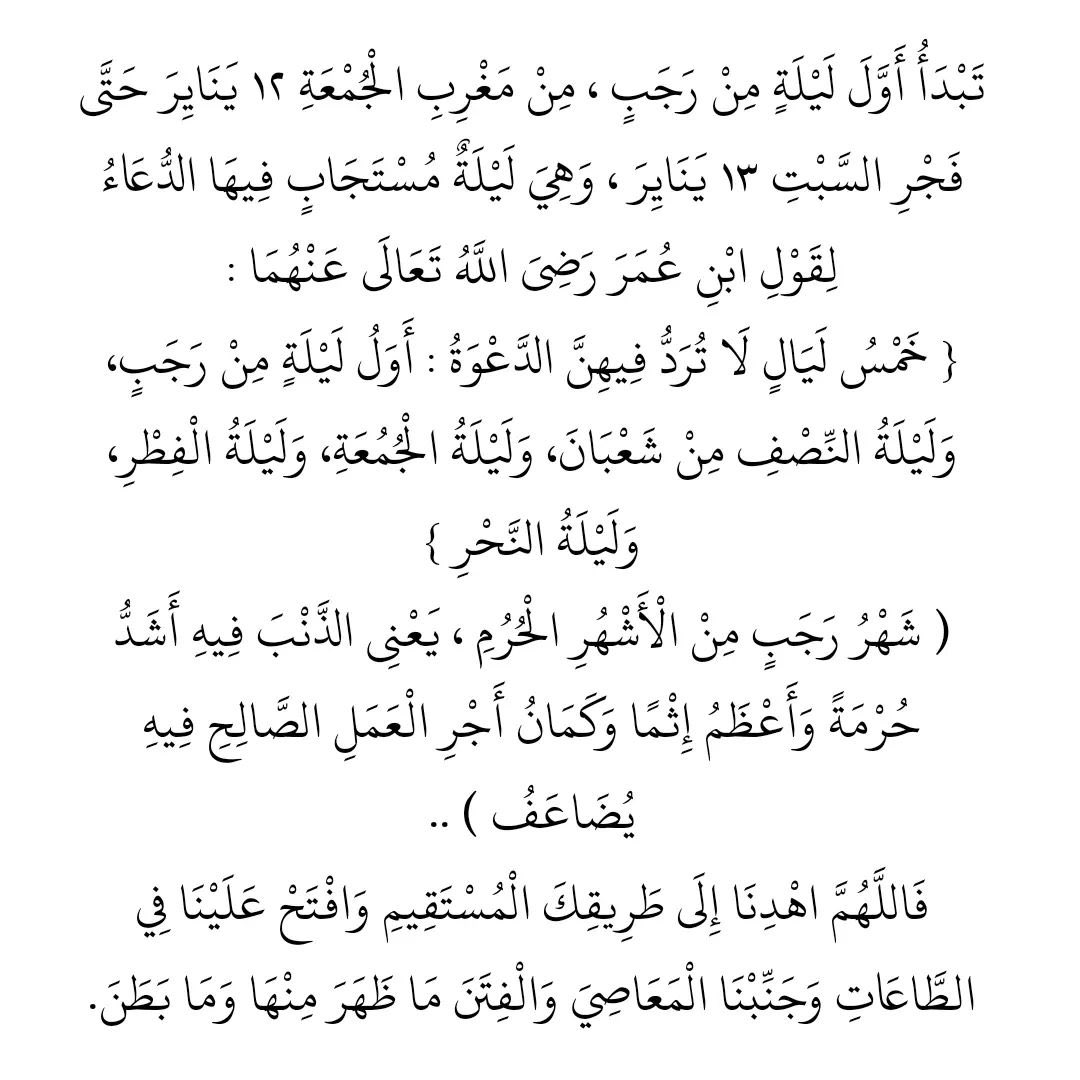 تَبْدَأُ أَوَّلَ لَيْلَةٍ مِنْ رَجَبٍ ، مِنْ مَغْرِبِ الْجُمْعَةِ ١٢ يَنَايِرَ حَتَّى
فَجْرِ السَّبْتِ ١٣ يَنَايِرَ ، وَهِيَ لَيْلَةٌ مُسْتَجَابٍ فِيهَا الدُّعَاءُ
لِقَوْلِ ابْنِ عُمَرَ رَضِىَ اللَّهُ تَعَالَى عَنْهُمَا :
{ خَمْسُ لَيَالٍ لَا تُرَدُّ فِيهِنَّ الدَّعْوَةُ : أَوَلُ لَيْلَةٍ مِنْ رَجَبٍ،
وَلَيْلَةُ النِّصْفِ مِنْ شَعْبَانَ، وَلَيْلَةُ الْجُمُعَةِ، وَلَيْلَةُ الْفِطْرِ،
وَلَيْلَةُ النَّحْرِ }
( شَهْرُ رَجَبٍ مِنْ الْأَشْهُرِ الْحُرُمِ ، يَعْنِى الذَّنْبَ فِيهِ أَشَدُّ
حُرْمَةً وَأَعْظَمُ إِثْمًا وَكَمَانُ أَجْرِ الْعَمَلِ الصَّالِحِ فِيهِ
يُضَاعَفُ ) ..
فَاللَّهُمَّ اهْدِنَا إِلَى طَرِيقِكَ الْمُسْتَقِيمِ وَافْتَحْ عَلَيْنَا فِي
الطَّاعَاتِ وَجَنِّبْنَا الْمَعَاصِيَ وَالْفِتَنَ مَا ظَهَرَ مِنْهَا وَمَا بَطَنَ.